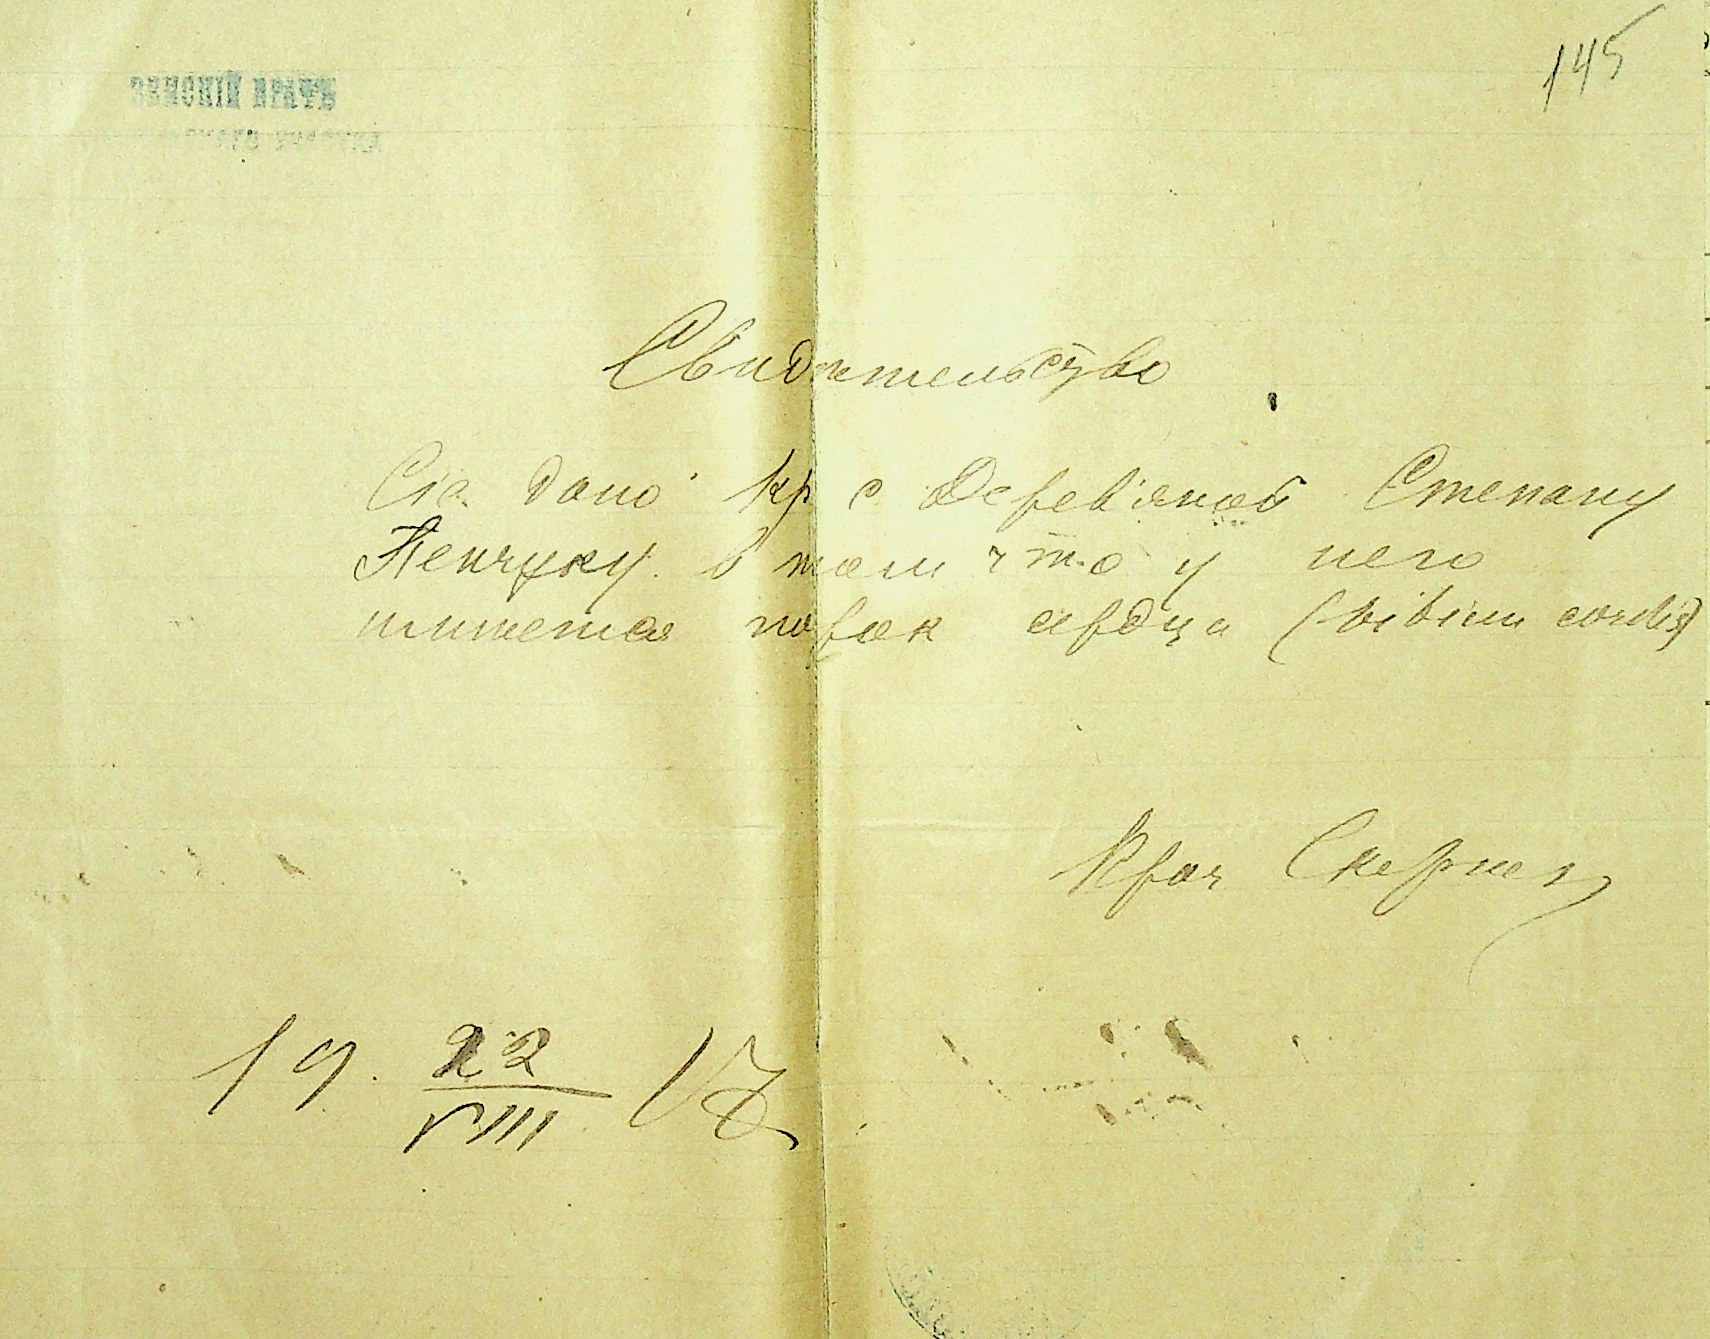 145
ЗЕМСКІЙ ВРАЧЪ
УЧАСТКА
Свидѣтельство
Сіе дано кр с Деревяной Степану
Пенчуку в том что у него
имеется порок сердца (vitium cordis)
Врач
19 22/VIII 17